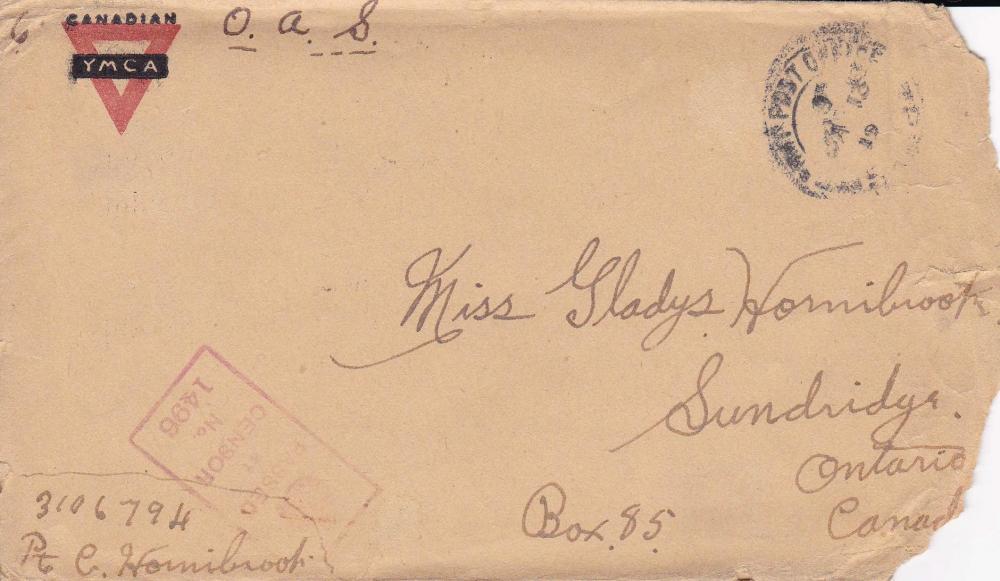 CANADIAN
YMCA
O. A. S.
POST OFFICE
19
Miss Gladys Hornibrook
Sundridge.
Ontario
Canad
Box. 85.
PASSED
BY
CENSOR
No.
1496
3106794
Pt C. Hornibrook